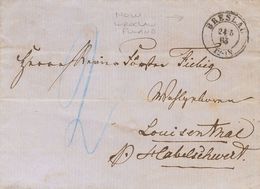 NOW
WROCLAW
POLAND
BRESLAU
24 5
Herrn Förster Fiebig
Wohlgeboren
Louisenthal
p/ Habelschwert.
2